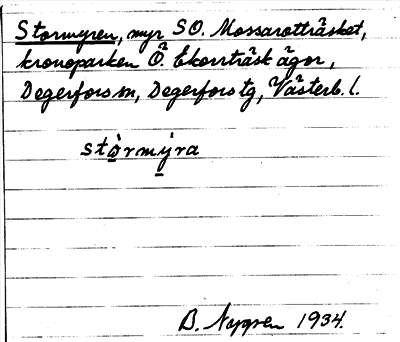 Stormyren, myr SO. Mossarotträsket,
kronoparken Ö. Ekorrträsk ägor,
Degerfors sn, Degerfors tg, Västerb. l.
stòrmýra
B. Nygren 1934.